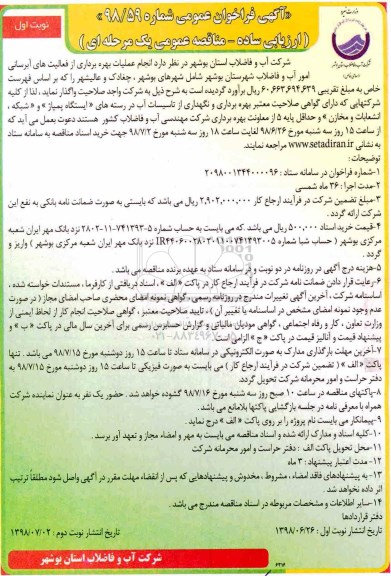 وزارت نیرو
«آگهی فراخوان عمومی شماره ۹۸/۵۹»
نوبت اول
( ارزیابی ساده - مناقصه عمومی یک مرحله ای )
شرکت آب و فاضلاب استان بوشهر در نظر دارد انجام عملیات بهره برداری از فعالیت های آبرسانی
امور آب و فاضلاب شهرستان بوشهر شامل شهرهای بوشهر ، چغادک و عالیشهر را که بر اساس فهرست
خاص به مبلغ تقریبی ۶۰,۶۶۳,۶۹۴,۶۳۹ ریال برآورد گردیده است به شرح ذیل به شرکت واجد صلاحیت واگذار نماید ، لذا از کلیه
شرکتهایی که دارای گواهی صلاحیت معتبر بهره برداری و نگهداری از تاسیسات آب در رسته های « ایستگاه پمپاژ » و « شبکه ،
انشعابات و مخازن » و حداقل پایه ۵ از معاونت بهره برداری شرکت مهندسی آب و فاضلاب کشور هستند دعوت بعمل می آید که
از ساعت ۱۵ روز سه شنبه مورخ ۹۸/۶/۲۶ لغایت ساعت ۱۸ روز سه شنبه مورخ ۹۸/۷/۲ جهت خرید اسناد مناقصه به سامانه ستاد
به نشانی www.setadiran.ir مراجعه نمایند.
توضیحات :
۱-شماره فراخوان در سامانه ستاد : ۲۰۹۸۰۰۱۳۴۴۰۰۰۰۹۶
۲-مدت اجرا : ۳۶ ماه شمسی
۳-مبلغ تضمین شرکت در فرآیند ارجاع کار ۲,۹۰۲,۰۰۰,۰۰۰ ریال می باشد که بایستی به صورت ضمانت نامه بانکی به نفع این
شرکت ارائه گردد .
۴-قیمت خرید اسناد ۵۰۰,۰۰۰ ریال می باشد .که می بایست به حساب شماره ۵-۷۴۱۳۹۳-۱۱-۲۸۰۲ نزد بانک مهر ایران شعبه
مرکزی بوشهر
۵-هزینه درج آگهی در روزنامه در دو نوبت و در سامانه ستاد به عهده برنده مناقصه می باشد .
۶-رعایت قرار دادن ضمانت نامه شرکت در فرآیند ارجاع کار در پاکت « الف » ، اسناد دریافتی از کارفرما ، مستندات خواسته شده ،
اساسنامه شرکت ، آخرین آگهی تغییرات مندرج در روزنامه رسمی ، گواهی نمونه امضای محضری صاحب امضای مجاز ( در صورت
عدم وجود نمونه امضای مشخص در اساسنامه یا تغییر آن ) ، تایید صلاحیت معتبر ، گواهی صلاحیت انجام کار از لحاظ ایمنی از
وزارت تعاون ، کار و رفاه اجتماعی ، گواهی مودیان مالیاتی و گزارش حسابرس رسمی برای آخرین سال مالی در پاکت « ب » و
پیشنهاد قیمت و آنالیز قیمت در پاکت « ج » الزامی است .
۷-آخرین مهلت بارگذاری مدارک به صورت الکترونیکی در سامانه ستاد تا ساعت ۱۵ روز دوشنبه مورخ ۹۸/۷/۱۵ می باشد . تنها
پاکت « الف » ( تضمین شرکت در فرآیند ارجاع کار ) می بایست به صورت فیزیکی تا ساعت ۱۵ روز دوشنبه مورخ ۹۸/۷/۱۵ به
دفتر حراست و امور محرمانه شرکت تحویل گردد.
۸-پاکتهای مناقصه در ساعت ۱۰ صبح روز سه شنبه مورخ ۹۸/۷/۱۶ گشوده خواهد شد . حضور یک نفر به عنوان نماینده شرکت
همراه با معرفی نامه در جلسه بازگشایی پاکتها بلامانع می باشد.
۹-پیمانکار می بایست نام پروژه را بر روی پاکت « الف » درج نماید .
۱۰-کلیه اسناد و مدارک ارائه شده و اسناد مناقصه می بایست به مهر و امضاء مجاز و تعهد آور برسد .
۱۱-محل تحویل پاکت الف : دفتر حراست و امور محرمانه شرکت
۱۲-مدت اعتبار پیشنهاد : ۳ ماه
۱۳-به پیشنهادهای فاقد امضاء ، مشروط ، مخدوش و پیشنهادهایی که پس از انقضاء مهلت مقرر در آگهی واصل شود مطلقاً ترتیب
اثر داده نخواهد شد .
۱۴-سایر اطلاعات و مشخصات مربوطه در اسناد مناقصه مندرج می باشد .
دفتر قراردادها
تاریخ انتشار نوبت اول : ۱۳۹۸/۰۶/۲۶
تاریخ انتشار نوبت دوم : ۱۳۹۸/۰۷/۰۲
شرکت آب و فاضلاب استان بوشهر